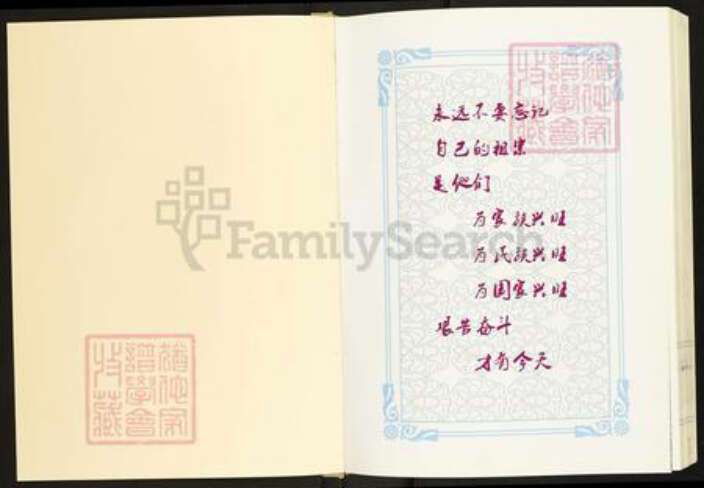 永远不要忘记
自己的祖宗
是他们
为家族兴旺
为民族兴旺
为国家兴旺
艰苦奋斗
才有今天
猶他家
譜學會
收藏
猶他家
譜學會
收藏
FamilySearch